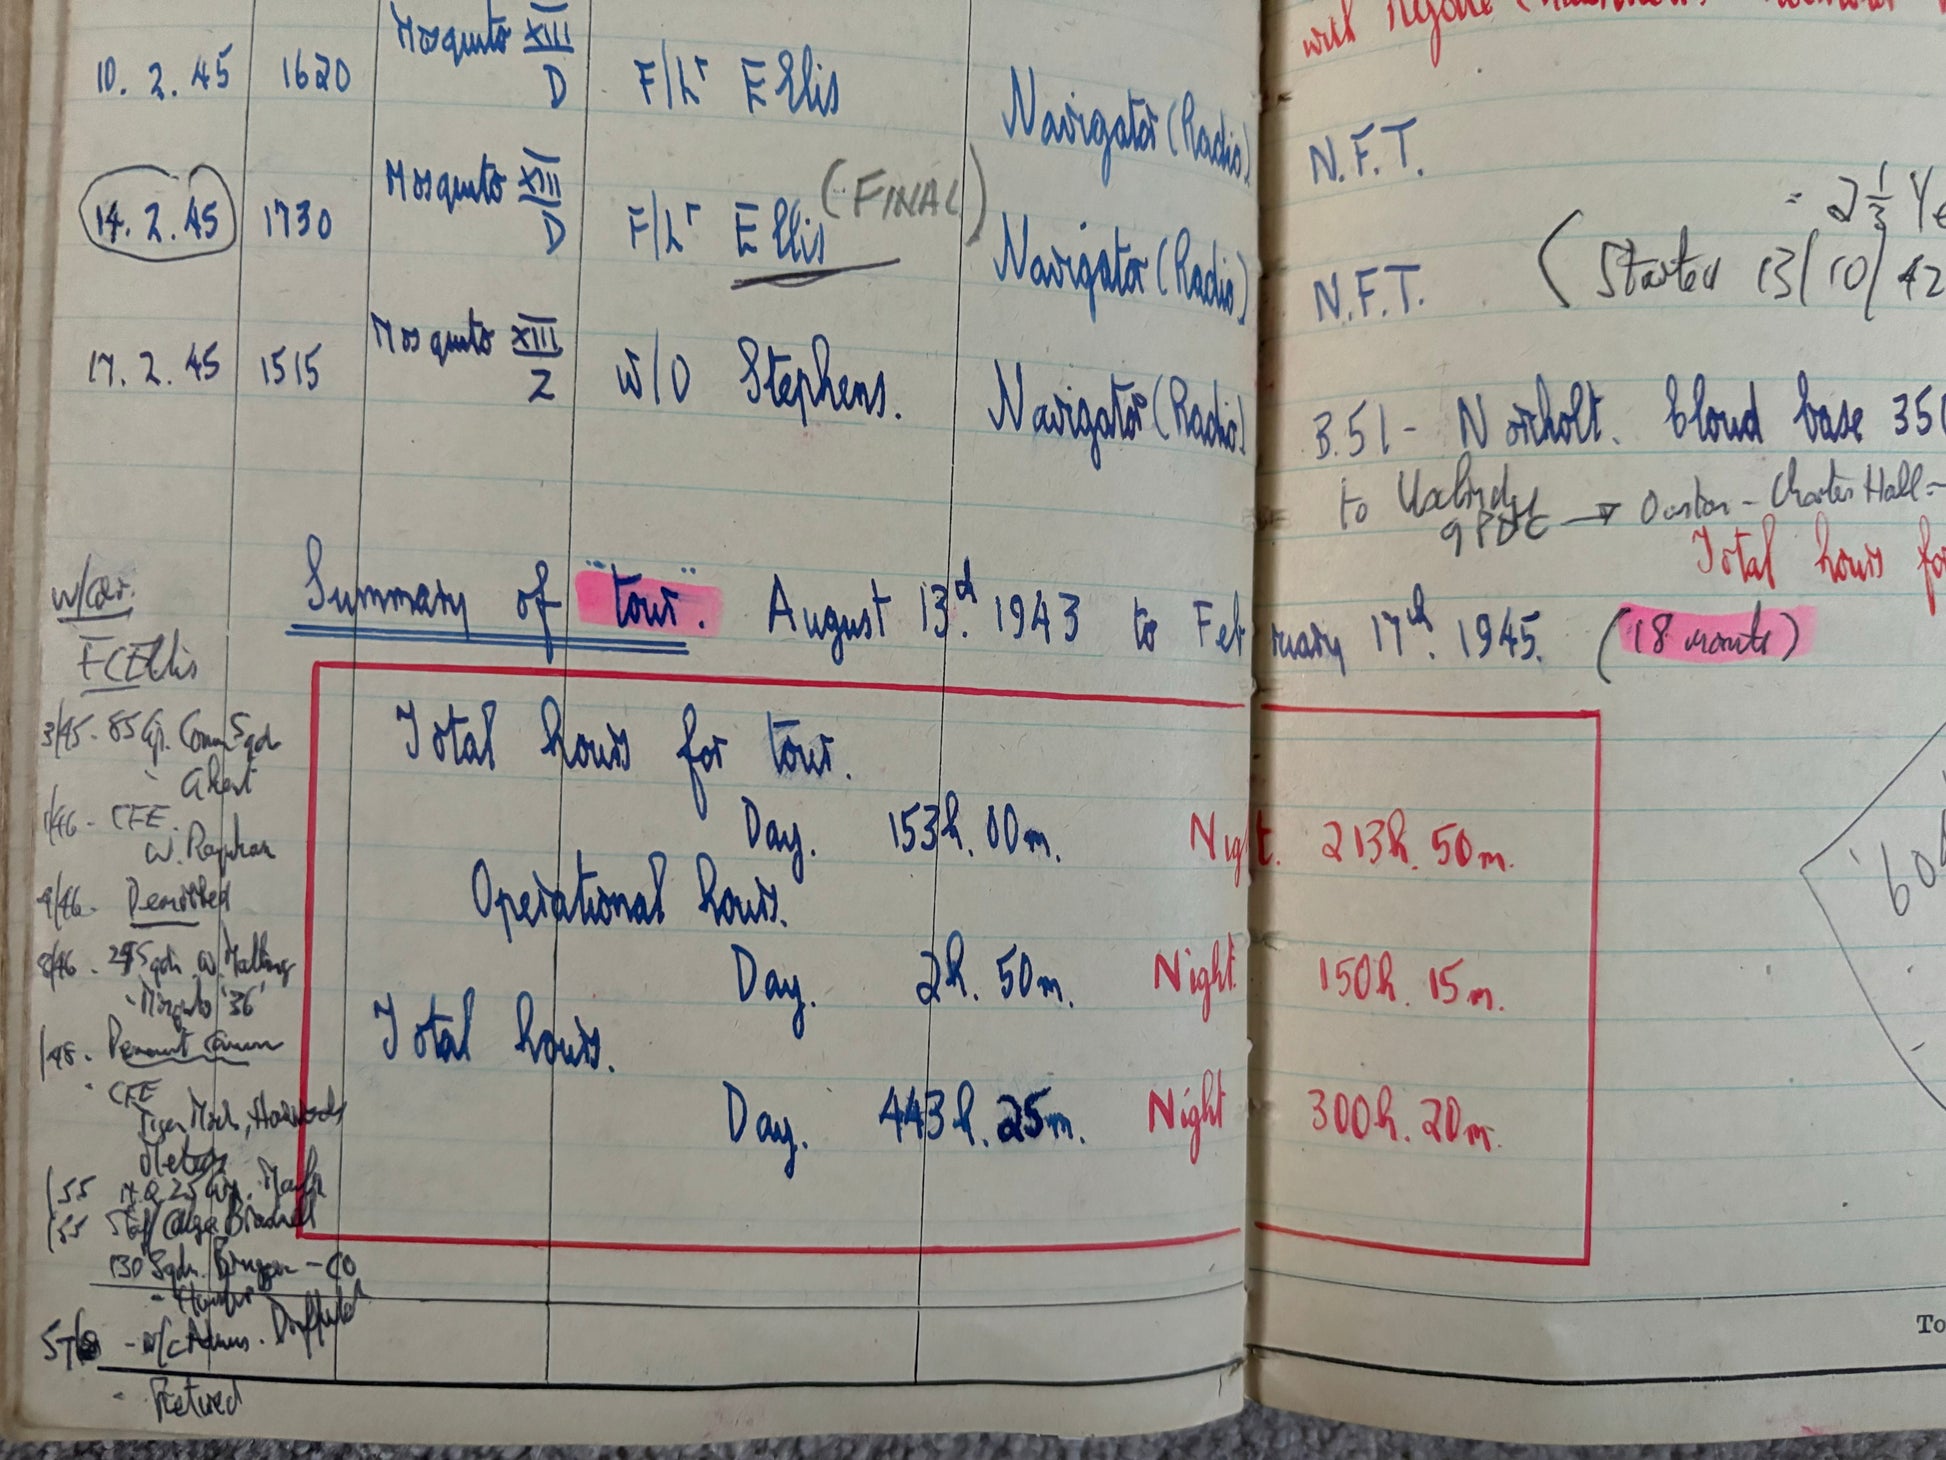 with
10. 2. 45 1620 Mosquito XIII D F/Lt Ellis Navigator (Radio) N.F.T.
= 2 1/3 Ye
14. 2. 45 1730 Mosquito XIII D F/Lt Ellis (FINAL) Navigator (Radio) N.F.T. (Started 13/10/42
17. 2. 45 1515 Mosquito XIII Z W/O Stephens. Navigator (Radio) B.51 - Northolt. Cloud base 350
to Uxbridge → Ouston - Charter Hall -
Total hours fo
Summary of "tour". August 13th. 1943 to February 17th. 1945. (18 months)
Total hours for tour.
Day. 153h. 00m. Night. 213h. 50m.
Operational hours.
Day. 2h. 50m. Night 150h. 15m.
Total hours.
Day. 443h. 25m. Night 300h. 20m.
W/Cdr.
F C Ellis
3/45 - 85 Gp. Comm Sqdn
- Ghent
1/46 - CFE.
W. Raynham
Demobbed
8/46 - 29 Sqdn W. Malling
- Mosquito '36'
/48 - Permanent Comm
- CFE
Tiger Moth, Harvards
Meteors
/55 H.Q. 25 Gp.
/55 Staff College Bracknell
130 Sqdn. Bruggen - CO
- Hunter
- W/C Admin. Driffield
- Retired
To